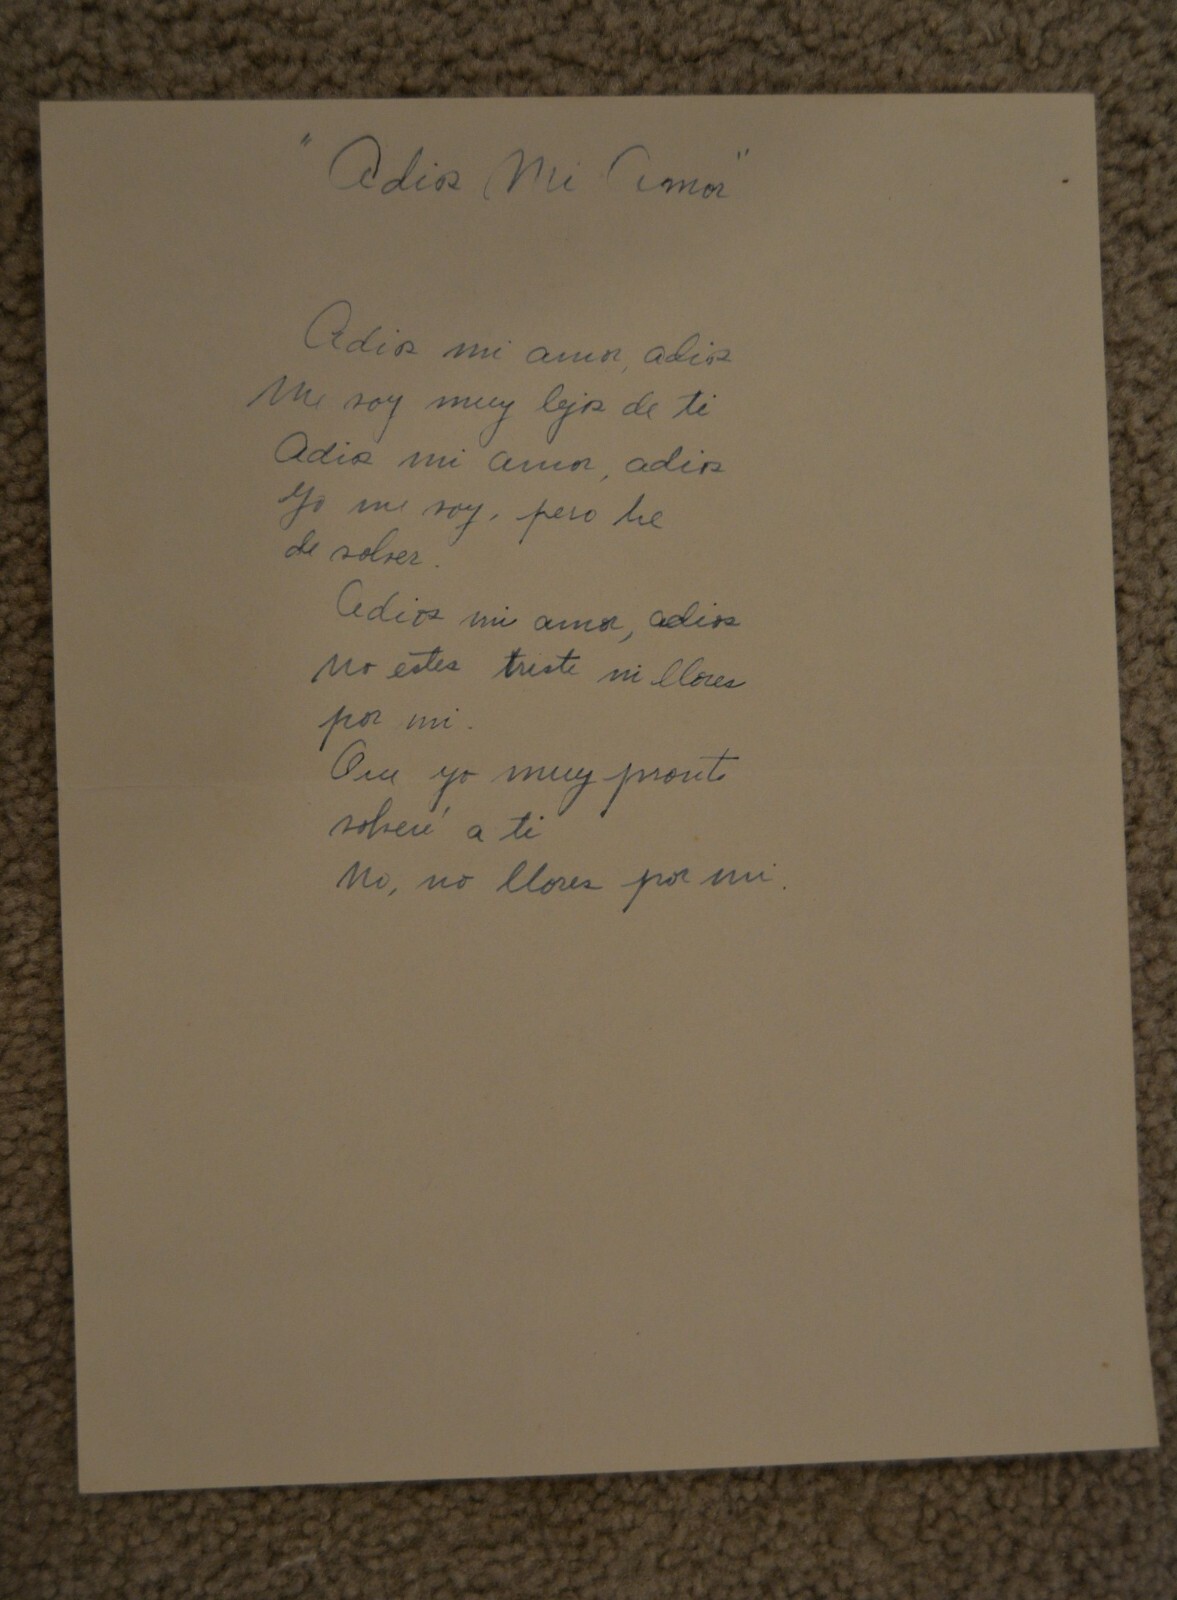 "Adios Mi Amor"
Adios mi amor, adios
Me voy muy lejos de ti
Adios mi amor, adios
Yo me voy, pero he
de volver.
Adios mi amor, adios
No estes triste ni llores
por mi.
Que yo muy pronto
volveré a ti
No, no llores por mi.